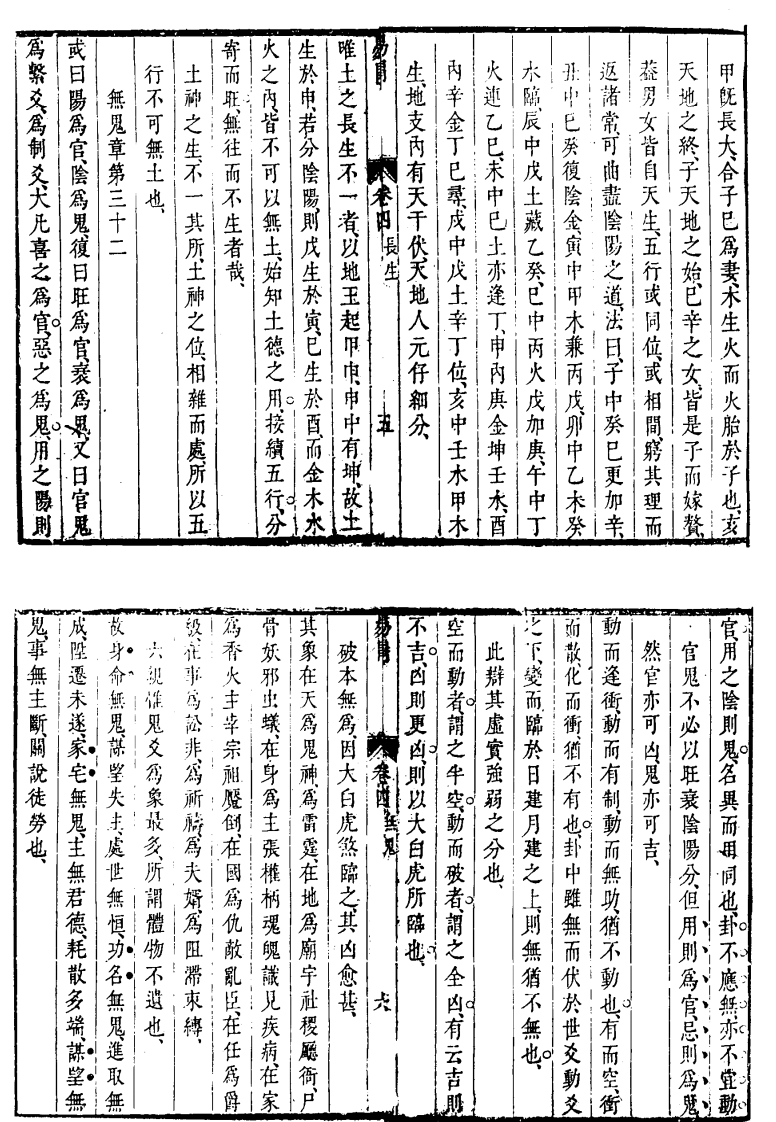 甲既長大、合子巳爲妻、木生火而火胎於子也、亥
天地之終、子天地之始、巳辛之女、皆是子而嫁贅、
葢男女皆自天生、五行或同位、或相間、窮其理而
返諸常、可曲盡陰陽之道、法曰、子中癸巳更加辛、
丑中巳癸復陰金、寅中甲木兼丙戊、卯中乙木癸
水臨、辰中戊土藏乙癸、巳中丙火戊加庚、午中丁
火連乙巳、未中巳土亦逢丁、申內庚金坤壬水、酉
內辛金丁巳尋、戌中戊土辛丁位、亥中壬水甲木
生、地支內有天干伏、天地人元仔細分、
易冐 卷四 長生 五
唯土之長生不一者、以地玉起甲申、申中有坤、故土
生於申、若分陰陽、則戊生於寅、巳生於酉、而金木水
火之內、皆不可以無土、始知土德之用、接續五行、分
寄而旺、無往而不生者哉、
土神之生、不一其所、土神之位、相雜而處、所以五
行不可無土也、
無鬼章第三十二
或曰陽爲官、陰爲鬼、復曰旺爲官、衰爲鬼、又曰官鬼
爲繫爻、爲制爻、大凡喜之爲官、惡之爲鬼、用之陽則
官、用之陰則鬼、名異而用同也、卦不應無、亦不宜動
官鬼不必以旺衰陰陽分、但用則爲官、忌則爲鬼
然官亦可凶、鬼亦可吉、
動而逢衝、動而有制、動而無助、猶不動也、有而空、衝
而散、化而衝、猶不有也、卦中雖無而伏於世爻動爻
之下、變而臨於日建月建之上、則無猶不無也、
此辯其虛實強弱之分也、
空而動者、謂之半空、動而破者、謂之全凶、有云吉則
不吉、凶則更凶、則以大白虎所臨也、
易冐 卷四 無鬼 六
破本無爲、因大白虎煞臨之、其凶愈甚、
其象在天爲鬼神、爲雷霆、在地爲廟宇社稷廳衙、尸
骨妖邪虫蟻、在身爲主張權柄魂魄識見疾病、在家
爲香火主宰宗祖魘倒、在國爲仇敵亂臣、在任爲爵
級、在事爲訟非、爲祈禱、爲夫婿、爲阻滯束縛、
六親惟鬼爻爲象最多、所謂體物不遺也、
故身命無鬼、謀望失主、處世無恒、功名無鬼、進取無
成、陞遷未遂、家宅無鬼、主無君德、耗散多端、謀望無
鬼、事無主斷、關說徒勞也、